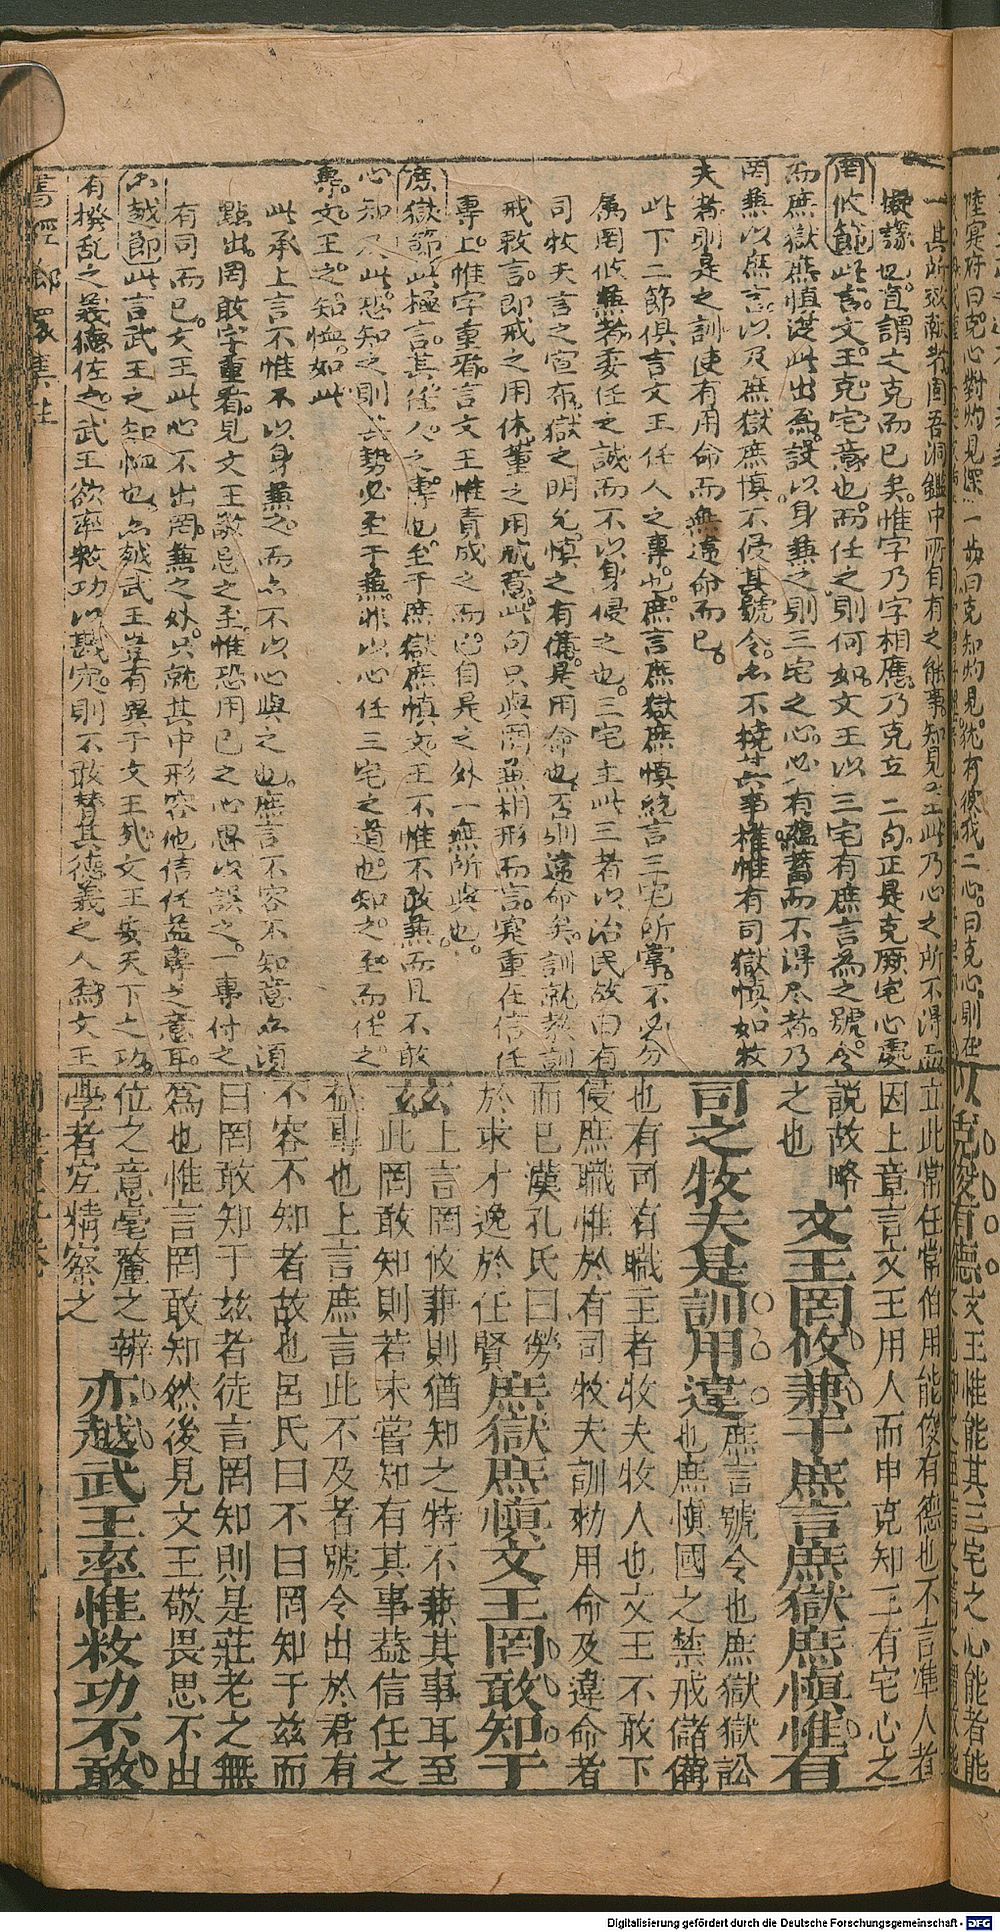 一其所效猷者固吾洞鑑中所自有之能事知見至此乃心之所不得而
擬議也豈謂之克而已矣惟字乃字相應乃克立二句正是克厥宅心處
罔攸節此言文王克宅意也而任之則何如文王以三宅有庶言為之號令
而庶獄庶慎從此出焉設以身兼之則三宅之心心有蘊蓄而不得尽者乃
罔兼以庶言以及庶獄庶慎不侵其號令亦不撓其事權惟有司獄慎如牧
夫者則是之訓使有用命而無違命而已
此下二節俱言文王任人之專也庶言庶獄庶慎統言三宅所掌不必分
属罔攸兼者委任之誠而不以身侵之也三宅主此三者以治民故曰有
司牧夫言之宣布獄之明允慎之有備是用命也否則違命矣訓就教訓
戒敕言即戒之用休董之用威意此句只與罔兼相形而言寔重在信任
專上惟字重看言文王惟責成之而已自是之外一無所與也
庶獄節此極言其任人之專也至于庶獄庶慎文王不惟不敢兼而且不敢
心知及此恐知之則其勢必至于兼非出心任三宅之道也知之至而任之
專文王之知恤如此
此承上言不惟不以身兼之而亦不以心與之也庶言不容不知意亦須
點出罔敢字重看見文王敬忌之至惟恐用已之心思以誤之一專付之
有司而已文王此心不出罔兼之外只就其中形容他信任益專之意耳
亦越節此言武王之知恤也亦越武王豈有異于文王哉文王安天下之功
有撥乱之義德佐之武王欲率敉功以戡定則不敢替其德義之人焉文王
以克俊有德文王惟能其三宅之心能者能
立此常任常伯用能俊有德也不言準人者
因上章言文王用人而申克知三有宅心之
說故略之也文王罔攸兼于庶言庶獄庶慎惟有
司之牧夫是訓用違庶言號令也庶獄獄訟
也庶慎國之禁戒儲備
也有司有職主者牧夫牧人也文王不敢下
侵庶職惟於有司牧夫訓勑用命及違命者
而已漢孔氏曰勞
於求才逸於任賢庶獄庶慎文王罔敢知于
玆上言罔攸兼則猶知之特不兼其事耳至
此罔敢知則若未嘗知有其事蓋信任之
益專也上言庶言此不及者號令出於君有
不容不知者故也呂氏曰不曰罔知于玆而
曰罔敢知于玆者徒言罔知則是莊老之無
為也惟言罔敢知然後見文王敬畏思不出
位之意毫釐之辨
學者宜精察之亦越武王率惟敉功不敢
Digitalisierung gefördert durch die Deutsche Forschungsgemeinschaft - DFG